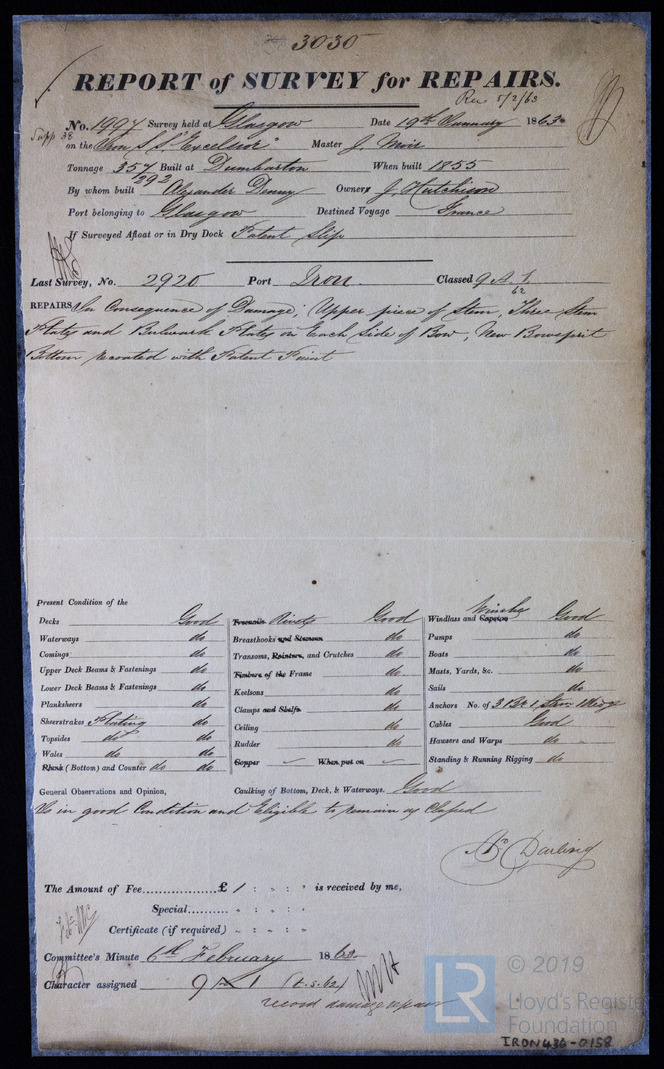 3030
REPORT of SURVEY for REPAIRS.
Rec 5/2/63
No. 1997 Survey held at Glasgow Date 19th January 1863
Supp 38
on the Iron S.S. "Excelsior" Master J. Moir
Tonnage 357 Built at Dumbarton When built 1855
292
By whom built Alexander Denny Owners J. Hutchison
Port belonging to Glasgow Destined Voyage France
If Surveyed Afloat or in Dry Dock Patent Slip
Last Survey, No. 2920 Port Iron Classed 9 A 1
62
REPAIRS In Consequence of Damage; Upper piece of Stem, Three Stem
Plates and Bulwark Plates on Each Side of Bow, New Bowsprit
Bottom recoated with Patent Paint
Present Condition of the
Decks Good
Waterways do
Comings do
Upper Deck Beams & Fastenings do
Lower Deck Beams & Fastenings do
Planksheers do
Sheerstrakes Plating do
Topsides do do
Wales do do
Plank (Bottom) and Counter do do
Treenails Rivets Good
Breasthooks and Stemson do
Transoms, Pointers, and Crutches do
Timbers of the Frame do
Keelsons do
Clamps and Shelfs do
Ceiling do
Rudder do
Copper When put on
Winches
Windlass and Capstan Good
Pumps do
Boats do
Masts, Yards, &c. do
Sails do
Anchors No. of 3 Br 1 Stm 1 Kedge
Cables Good
Hawsers and Warps do
Standing & Running Rigging do
General Observations and Opinion, Caulking of Bottom, Deck, & Waterways. Good
Is in good Condition and Eligible to remain as Classed
Darling
The Amount of Fee £ 1 : " : " is received by me,
Special " : " : "
Certificate (if required) " : " : "
Committee's Minute 6th February 1863
Character assigned 9 A 1 (t.5.62)
record damage repair
© 2019
LR
Lloyd's Register
Foundation
IRON436-0158